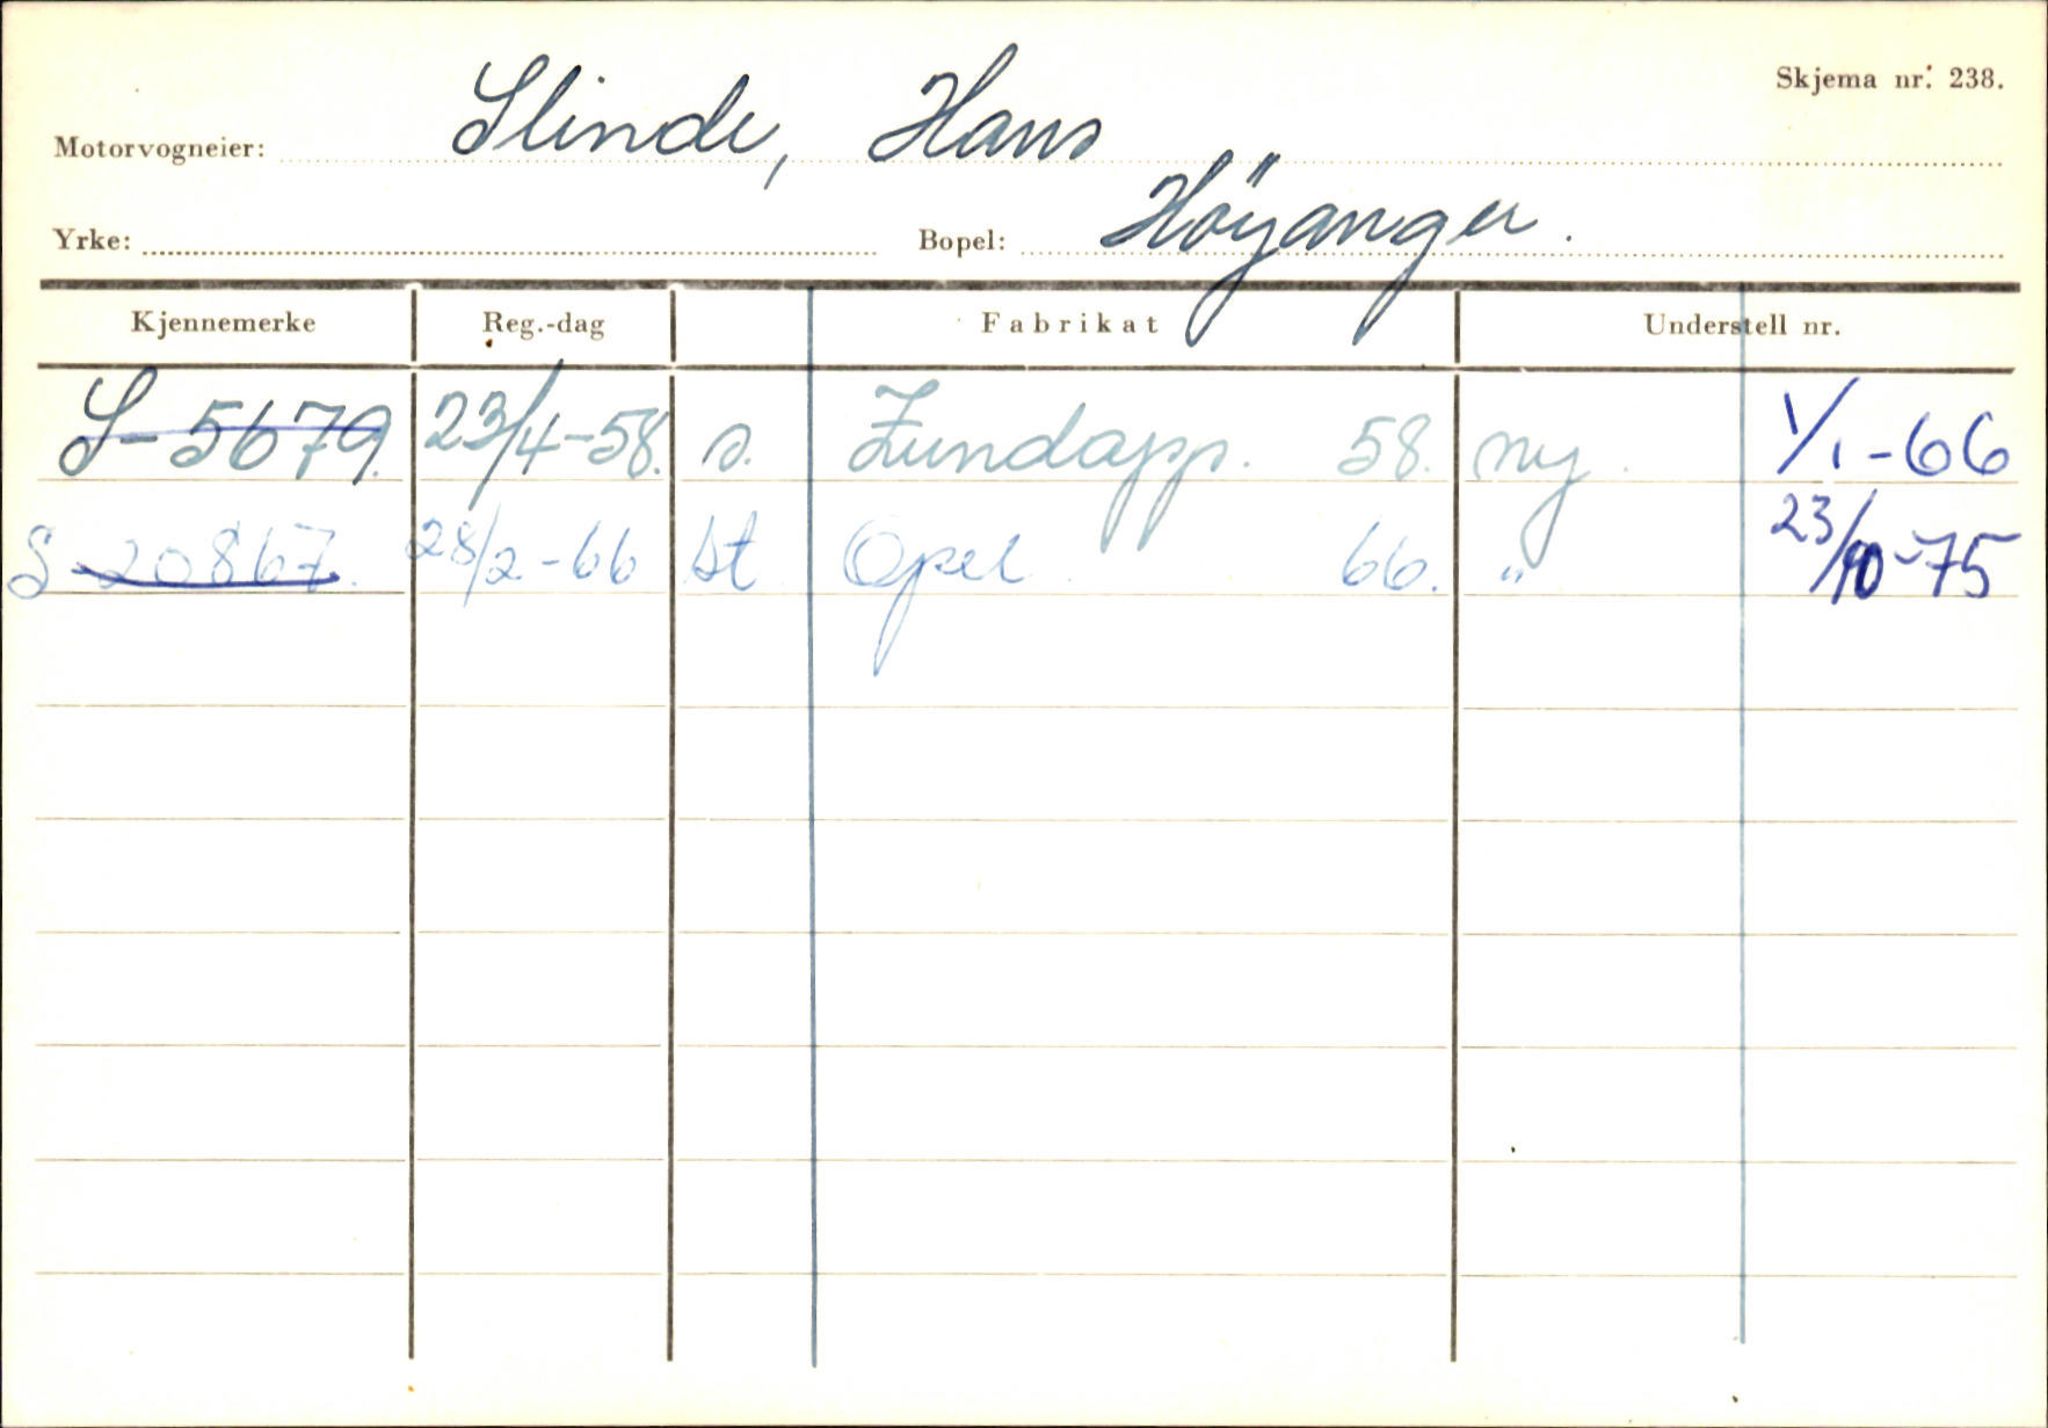 Skjema nr. 238.
Motorvogneier: Slinde, Hans
Yrke: Bopel: Höyanger.
Kjennemerke Reg.-dag Fabrikat Understell nr.
S-5679. 23/4-58. s. Zundapp. 58. ny. 1/1-66
S-20867. 28/2-66 st Opel 66. " 23/10-75